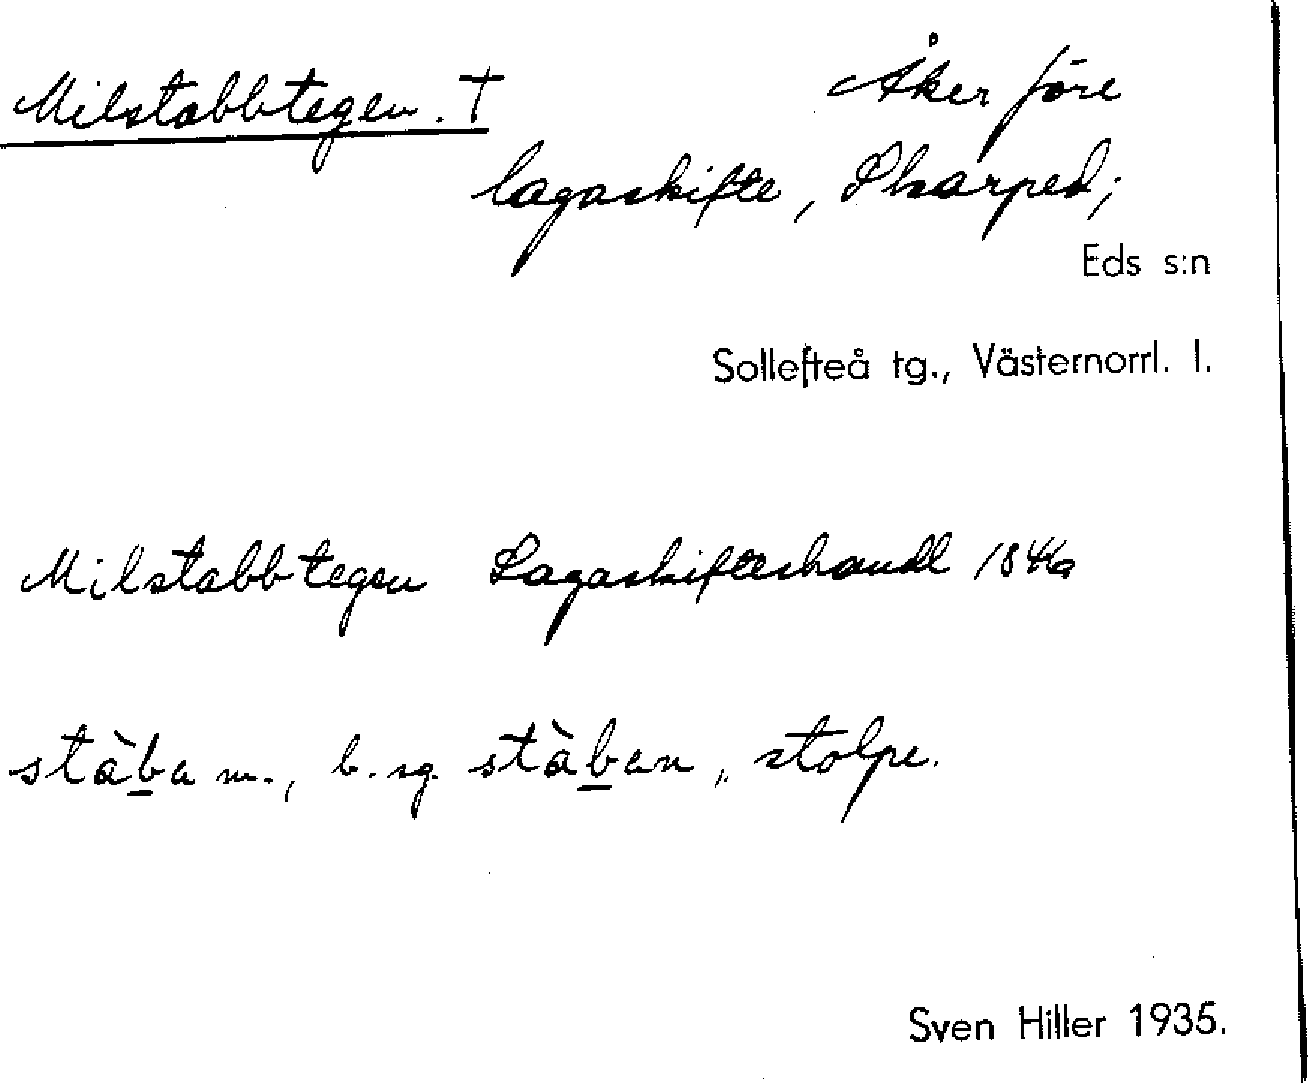 Milstabbtegen. †
Åker före
lagaskifte, Skarped;
Eds s:n
Sollefteå tg., Västernorrl. l.
Milstabbtegen Lagaskifteshandl 1844a
stàba m., b. sg. stàban, stolpe.
Sven Hiller 1935.